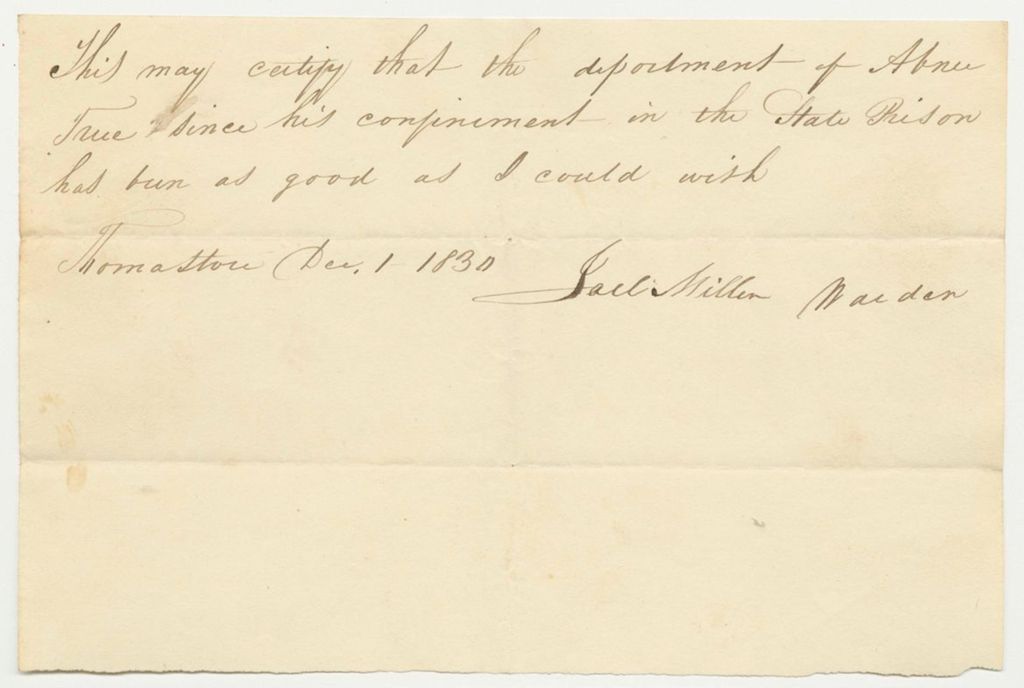 This may certify that the deportment of Abner
True since his confinement in the State Prison
has been as good as I could wish
Thomaston Dec. 1 1830
Joel Miller Warden